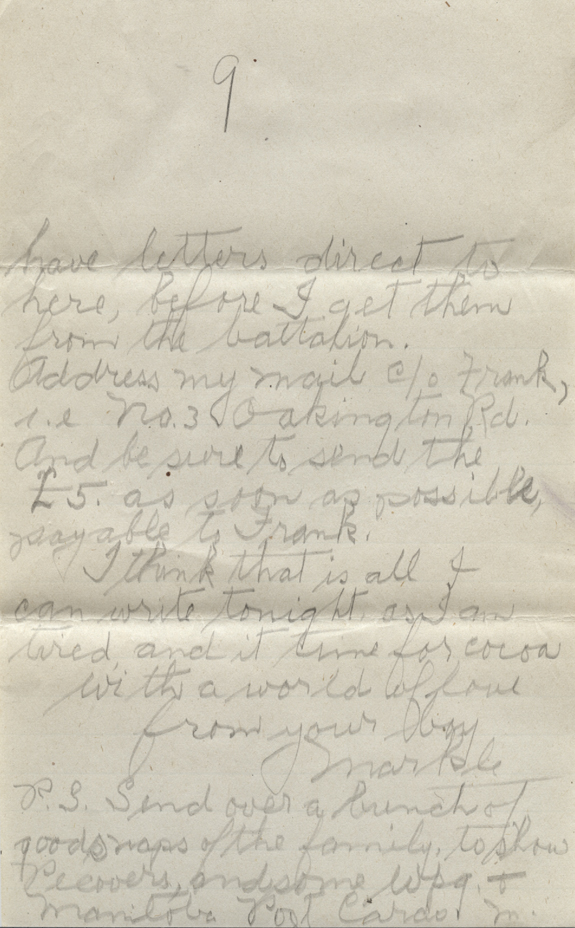 9
have letters direct to
here, before I get them
from the battalion.
Address my mail c/o Frank,
i.e No. 3 Oakington Rd.
And be sure to send the
£5. as soon as possible,
payable to Frank.
I think that is all I
can write tonight, as I am
tired, and it time for cocoa
with a world of love
from your boy
Markle
P.S. Send over a bunch of
good snaps of the family, to show
Pecovers, and some Wpg. +
Manitoba Post Cards. M.